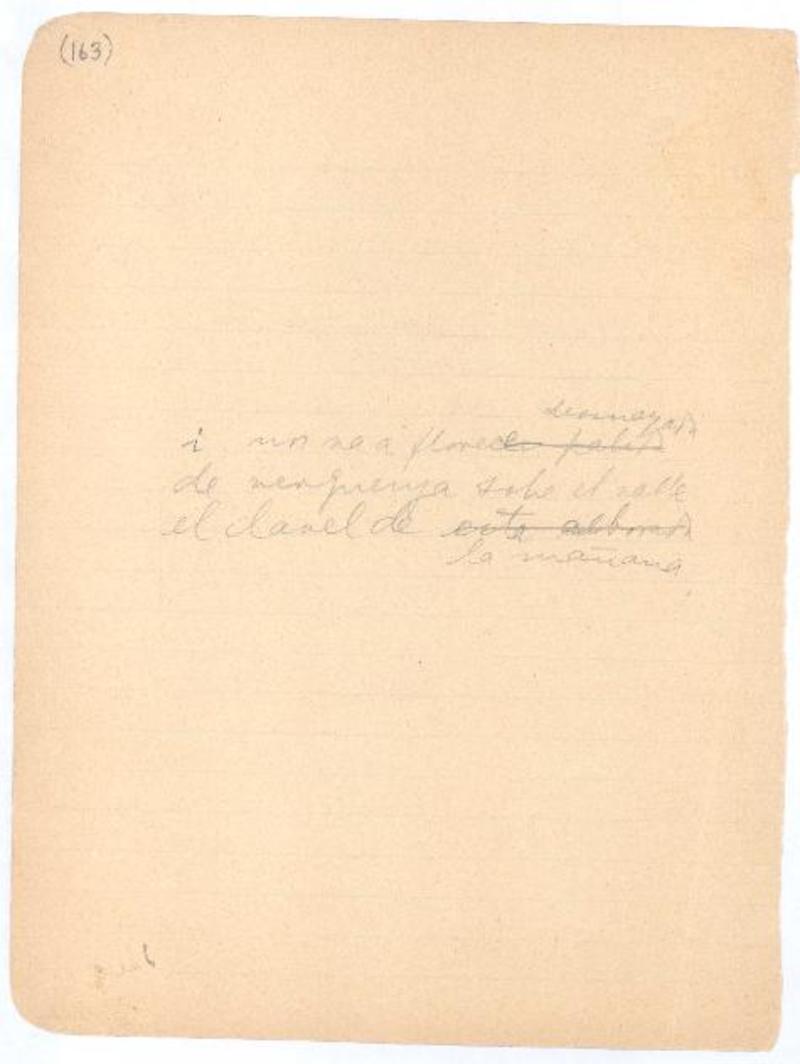 (163)
desmayada
i nos va a florecer palida
de verguenza sobre el valle
el clavel de esta alborada
la mañana